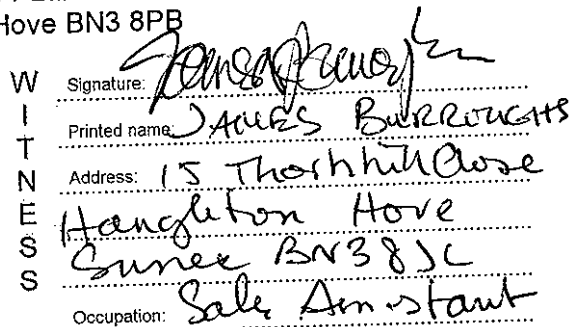 Hove BN3 8PB
WITNESS
Signature:
Printed name: JAMES BURROUGHS
Address: 15 Thornhill Close
Hangleton Hove
Sussex BN3 8JL
Occupation: Sales Assistant